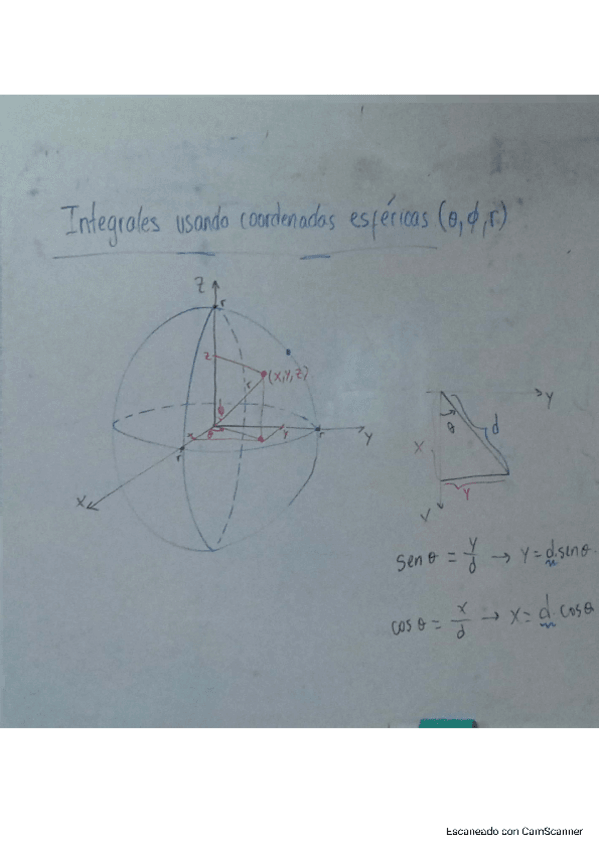 Integrales usando coordenadas esféricas (θ, ϕ, r)
Z
r
z
(x,y,z)
r
ϕ
x
θ
y
r
y
r
x
y
θ
d
x
y
sen θ = y/d → y = d.senθ
cos θ = x/d → x = d cosθ
Escaneado con CamScanner